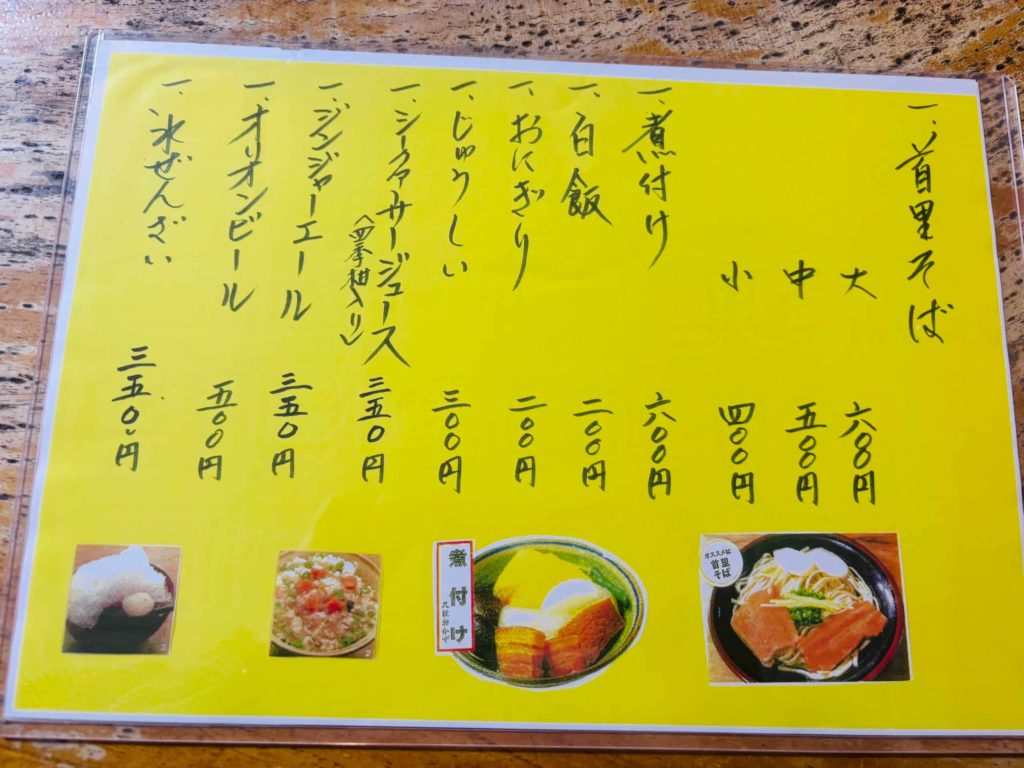 一、首里そば
大 六〇〇円
中 五〇〇円
小 四〇〇円
一、煮付け 六〇〇円
一、白飯 二〇〇円
一、おにぎり 二〇〇円
一、じゅうしい 三〇〇円
一、シークァーサージュース 三五〇円
(四季柑入り)
一、ジンジャーエール 三五〇円
一、オリオンビール 五〇〇円
一、氷ぜんざい 三五〇円
オススメは
首里
そば
煮付け
2
3